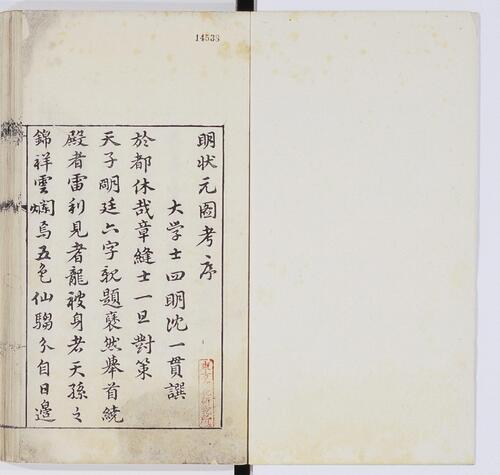 14538
明状元圖考序
大学士四明沈一貫譔
於都休哉章縫士一旦對策
天子明廷六字親題褎然舉首繞
殿者雷利見者龍被身者天孫之
錦祥雲爛焉五色仙騶分自日邊